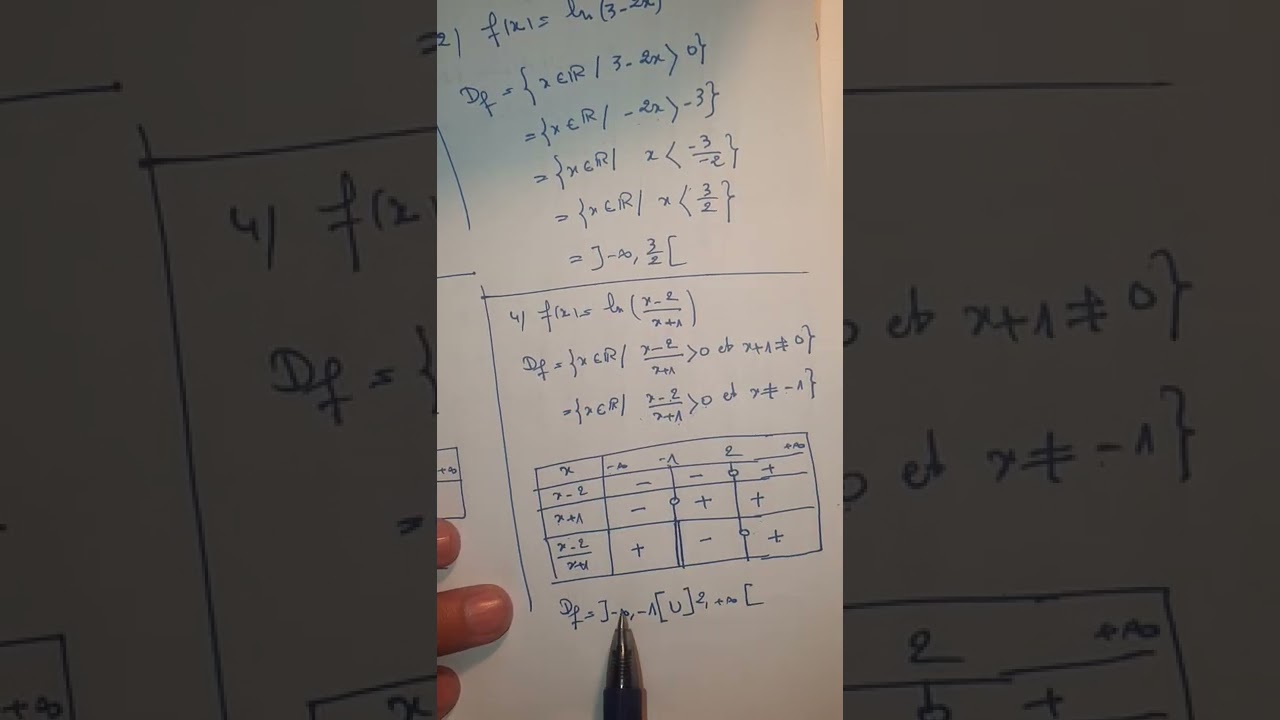 2) f(x) = ln(3-2x)
Df = {x∈ℝ / 3-2x > 0}
= {x∈ℝ / -2x > -3}
= {x∈ℝ / x < -3/-2}
= {x∈ℝ / x < 3/2}
= ]-∞, 3/2[
4) f(x) = ln(x-2/x+1)
Df = {x∈ℝ / x-2/x+1 > 0 et x+1 ≠ 0}
= {x∈ℝ / x-2/x+1 > 0 et x ≠ -1}
x -∞ -1 2 +∞
x-2 - - 0 +
x+1 - 0 + +
x-2/x+1 + || - 0 +
Df = ]-∞, -1[ ∪ ]2, +∞[